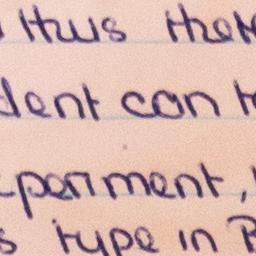 thus there
dent can t
periment,
s type in